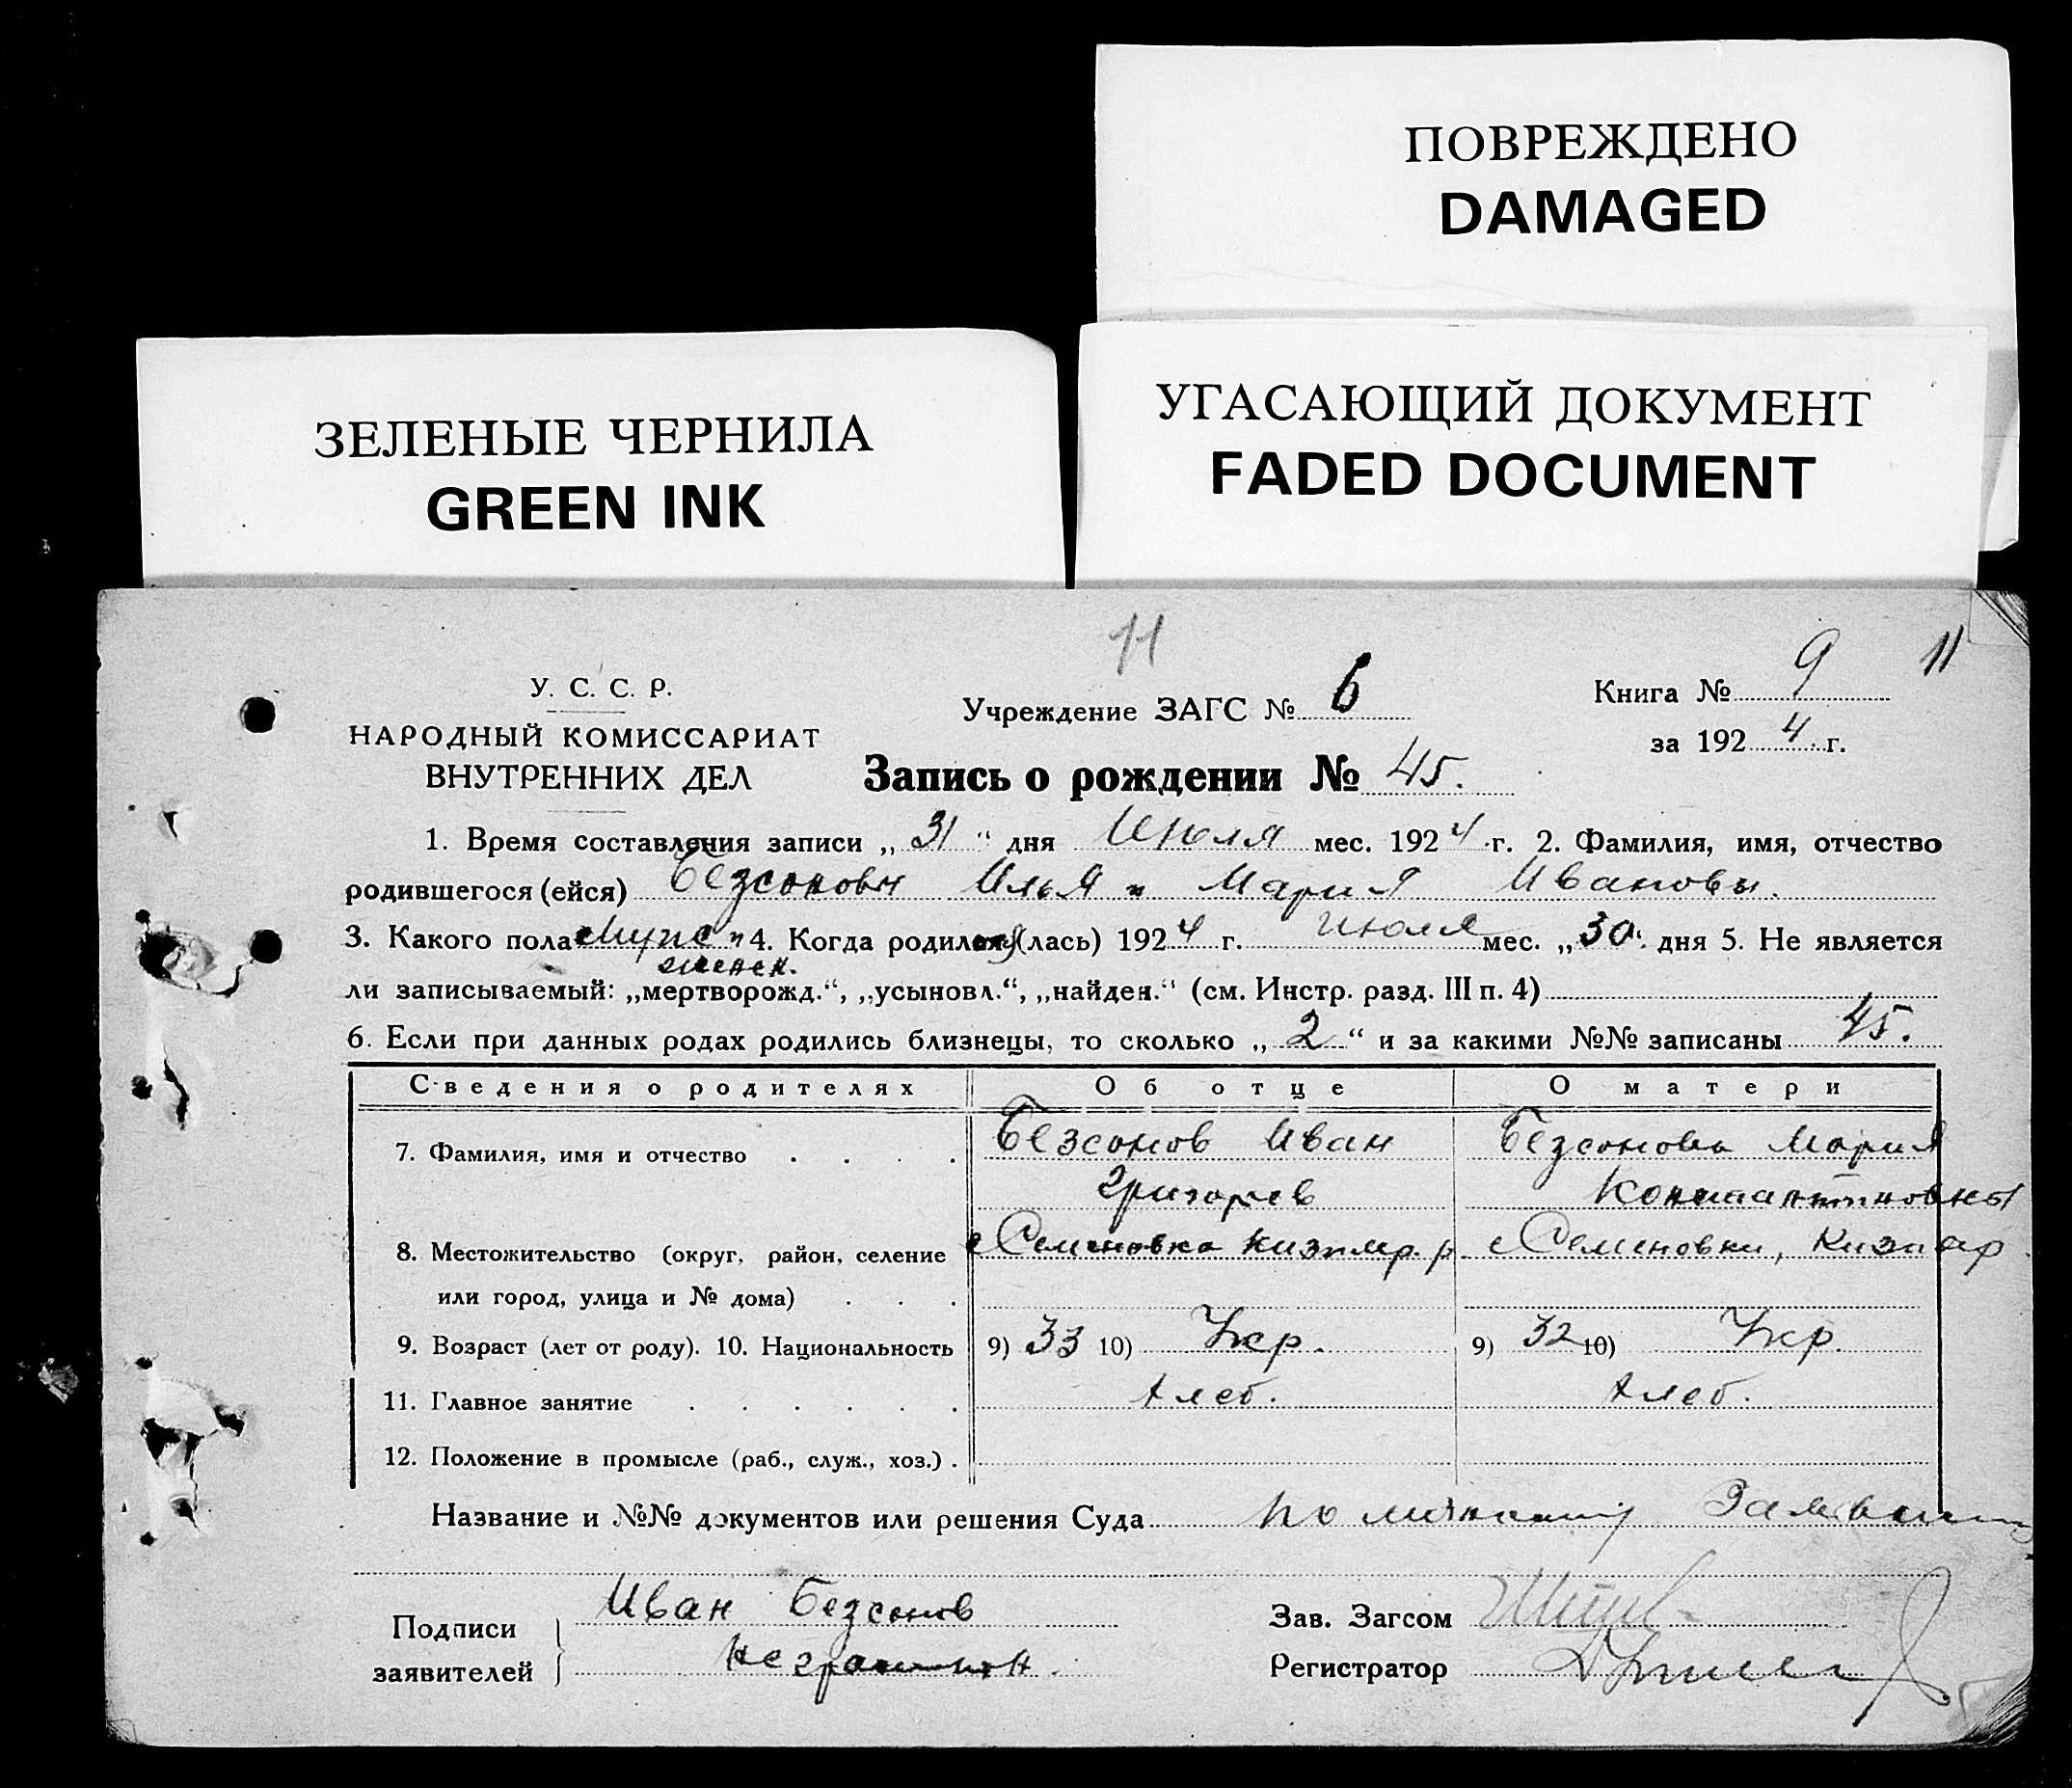 ПОВРЕЖДЕНО
DAMAGED
ЗЕЛЕНЫЕ ЧЕРНИЛА
GREEN INK
УГАСАЮЩИЙ ДОКУМЕНТ
FADED DOCUMENT
11
У. С. С. Р.
НАРОДНЫЙ КОМИССАРИАТ
ВНУТРЕННИХ ДЕЛ
Учреждение ЗАГС № 6
Книга № 9 11
за 1924 г.
Запись о рождении № 45.
1. Время составления записи „31“ дня Июля мес. 1924 г. 2. Фамилия, имя, отчество
родившегося (ейся) Безсоновы Илья и Мария Ивановы.
3. Какого пола Мужс и 4. Когда родился (лась) 1924 г. Июля мес. „30“ дня 5. Не является
женск.
ли записываемый: „мертворожд.“, „усыновл.“, „найден.“ (см. Инстр. разд. III п. 4)
6. Если при данных родах родились близнецы, то сколько „2“ и за какими №№ записаны 45.
Сведения о родителях Об отце О матери
7. Фамилия, имя и отчество Безсонов Иван Безсонова Мария
Григорьев Константиновна
8. Местожительство (округ, район, селение с Семеновка р. с Семеновки,
или город, улица и № дома)
9. Возраст (лет от роду). 10. Национальность 9) 33 10) Укр. 9) 32 10) Укр.
11. Главное занятие Хлеб. Хлеб.
12. Положение в промысле (раб., служ., хоз.)
Название и №№ документов или решения Суда по
Подписи заявителей Иван Безсонов
неграмотн.
Зав. Загсом
Регистратор